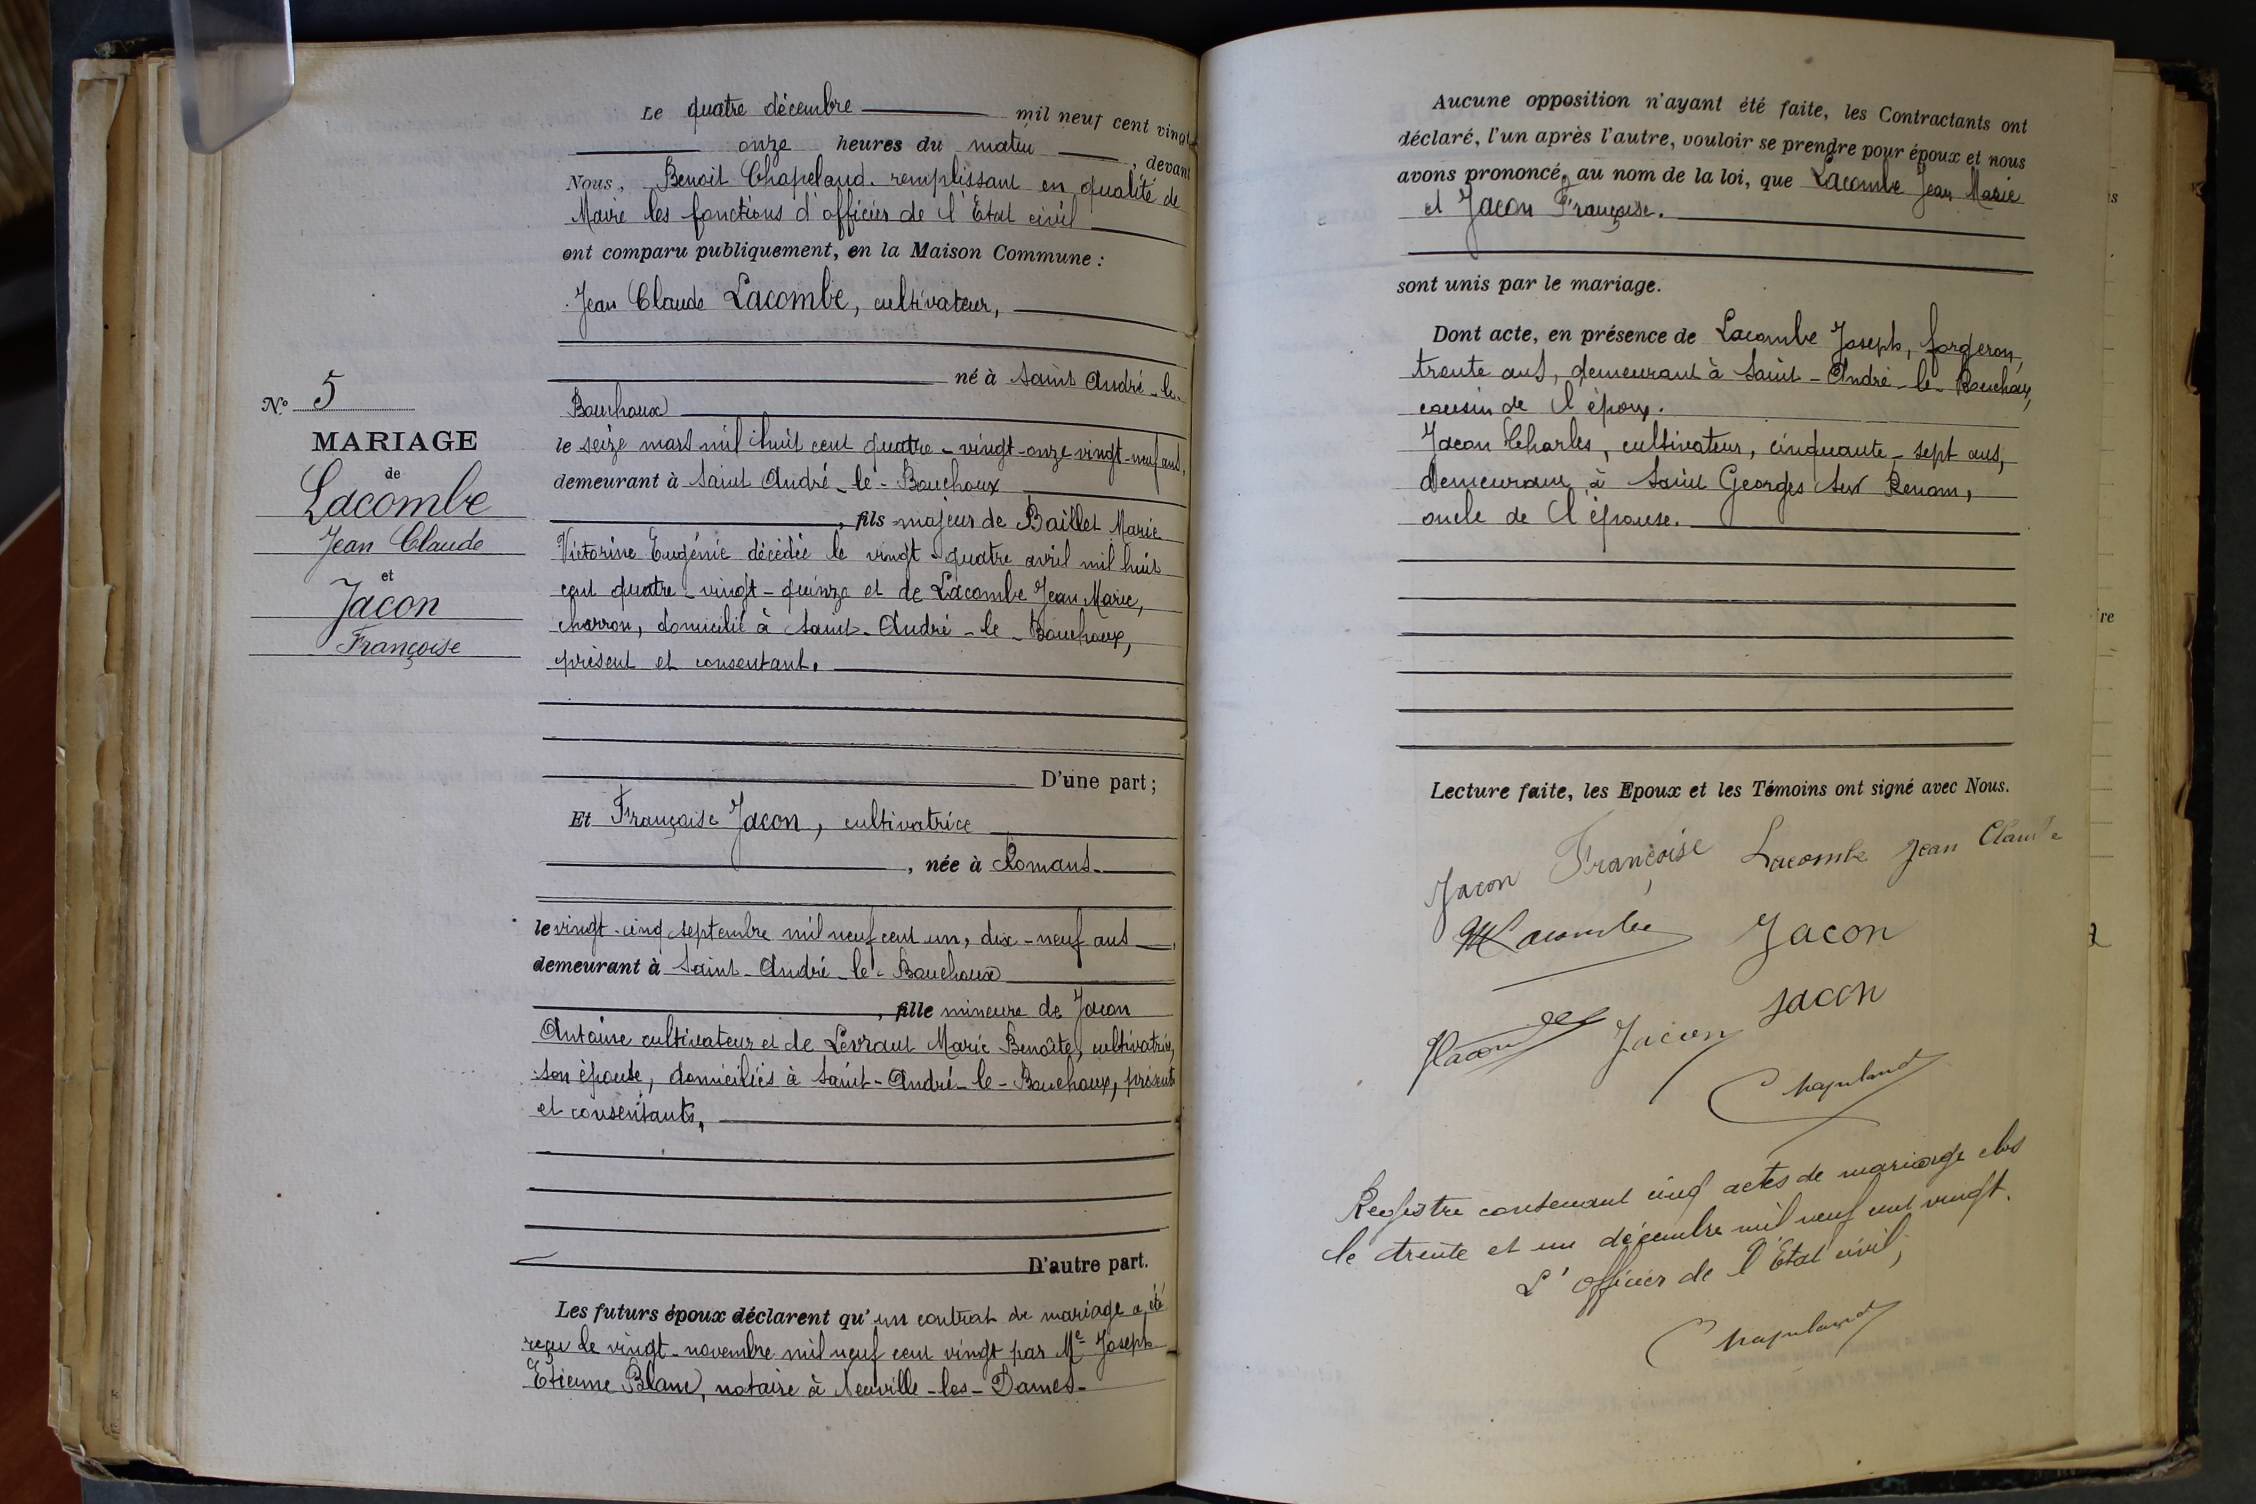 Le quatre décembre mil neuf cent vingt
onze heures du matin, devant
Nous, Benoit Chapeland remplissant en qualité de
Maire les fonctions d'officier de l'Etat civil
ont comparu publiquement, en la Maison Commune :
Jean Claude Lacombe, cultivateur,
né à Saint André-le-
Bouchoux
le seize mars mil huit cent quatre-vingt-onze vingt-neuf ans,
demeurant à Saint André-le-Bouchoux
, fils majeur de Baillet Marie
Victorine Eugénie décédée le vingt-quatre avril mil huit
cent quatre-vingt-quinze et de Lacombe Jean Marie,
charron, domicilié à Saint-André-le-Bouchoux,
présent et consentant.
D'une part ;
N° 5
MARIAGE
de
Lacombe
Jean Claude
et
Jacon
Françoise
Et Françoise Jacon, cultivatrice
, née à Romans
le vingt-cinq septembre mil neuf cent un, dix-neuf ans,
demeurant à Saint-André-le-Bouchoux
, fille mineure de Jacon
Antoine cultivateur et de Levraut Marie Benoîte, cultivatrice,
son épouse, domiciliés à Saint-André-le-Bouchoux, présents
et consentants,
D'autre part.
Les futurs époux déclarent qu'un contrat de mariage a été
reçu le vingt-novembre mil neuf cent vingt par Me Joseph
Etienne Blanc, notaire à Neuville-les-Dames-
Aucune opposition n'ayant été faite, les Contractants ont
déclaré, l'un après l'autre, vouloir se prendre pour époux et nous
avons prononcé, au nom de la loi, que Lacombe Jean Marie
et Jacon Françoise.
sont unis par le mariage.
Dont acte, en présence de Lacombe Joseph, forgeron,
trente ans, demeurant à Saint-André-le-Bouchoux,
cousin de l'époux.
Jacon Charles, cultivateur, cinquante-sept ans,
demeurant à Saint Georges sur Renom,
oncle de l'épouse.
Lecture faite, les Epoux et les Témoins ont signé avec Nous.
Jacon Françoise Lacombe Jean Claude
Lacombe Jacon
Jacon Jacon
Chapeland
Registre contenant cinq actes de mariage clos
le trente et un décembre mil neuf cent vingt.
L'Officier de l'Etat civil,
Chapeland